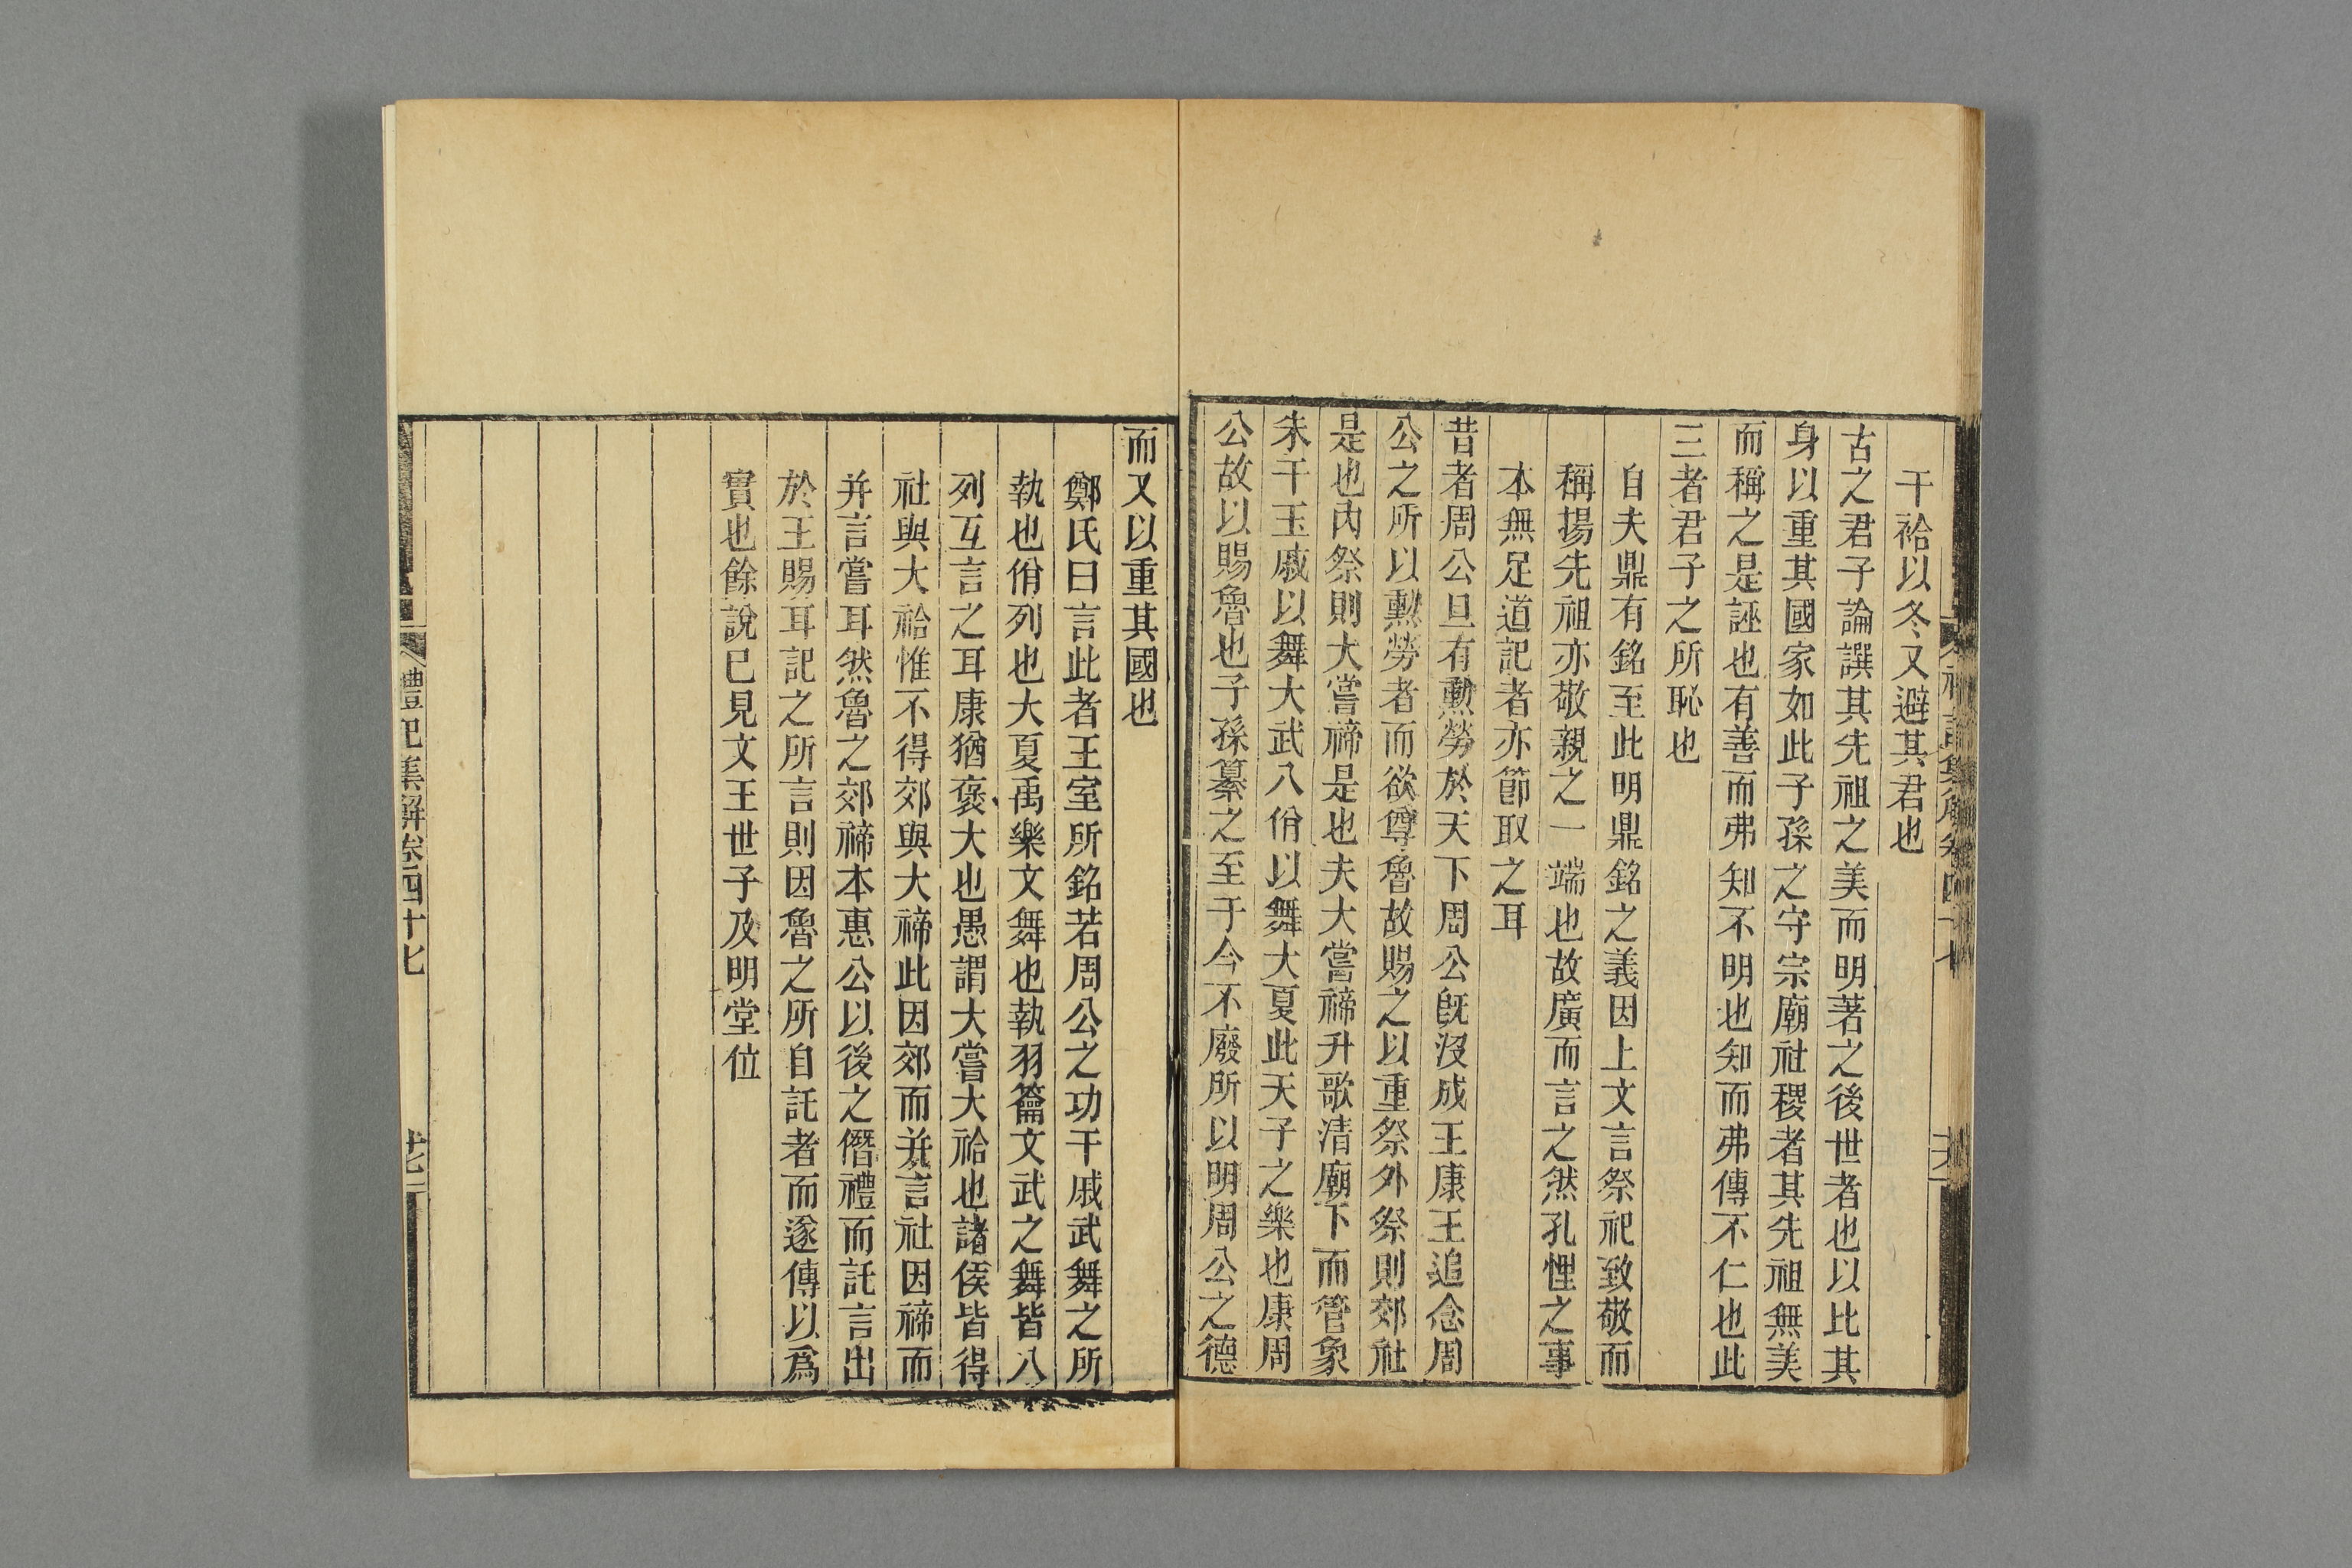 干祫以冬又避其君也
古之君子論譔其先祖之美而明著之後世者也以比其
身以重其國家如此子孫之守宗廟社稷者其先祖無美
而稱之是誣也有善而弗知不明也知而弗傳不仁也此
三者君子之所恥也
自夫鼎有銘至此明鼎銘之義因上文言祭祀致敬而
稱揚先祖亦敬親之一端也故廣而言之然孔悝之事
本無足道記者亦節取之耳
昔者周公旦有勳勞於天下周公旣沒成王康王追念周
公之所以勳勞者而欲尊魯故賜之以重祭外祭則郊社
是也內祭則大嘗禘是也夫大嘗禘升歌清廟下而管象
朱干玉戚以舞大武八佾以舞大夏此天子之樂也康周
公故以賜魯也子孫纂之至于今不廢所以明周公之德
而又以重其國也
鄭氏曰言此者王室所銘若周公之功干戚武舞之所
執也佾列也大夏禹樂文舞也執羽籥文武之舞皆八
列互言之耳康猶褒大也愚謂大嘗大祫也諸侯皆得
社與大祫惟不得郊與大禘此因郊而幷言社因禘而
幷言嘗耳然魯之郊禘本惠公以後之僭禮而託言出
於王賜耳記之所言則因魯之所自託者而遂傳以爲
實也餘說已見文王世子及明堂位
禮記集解卷四十七